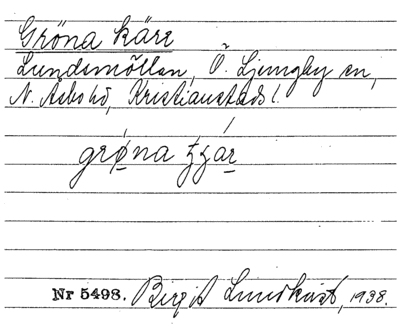 Gröna kärr
Lundsmöllan, Ö. Ljungby sn,
N. Åsbo hd, Kristianstads l.
grøna
Nr 5498. Birgit Lundkvist, 1938.